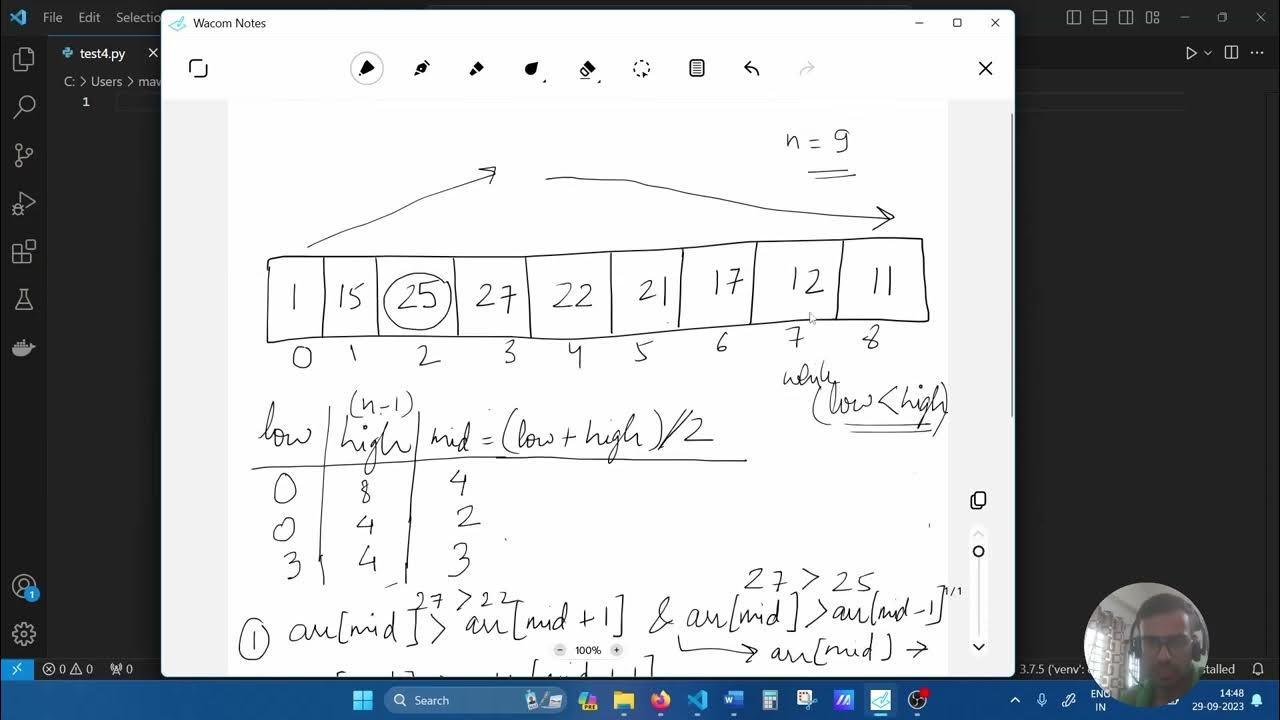 File Edit Selectio
Wacom Notes
test4.py
C: > Users > maw
1
n = 9
1 15 25 27 22 21 17 12 11
0 1 2 3 4 5 6 7 8
while
(low < high)
(n-1)
low high mid = (low + high) // 2
0 8 4
0 4 2
3 4 3
27 > 22 27 > 25
① arr[mid] > arr[mid + 1] & arr[mid] > arr[mid - 1]
1/1
arr[mid] →
100%
0 0 0
3.7.5 ('venv':
stalled
1
Search
PRE
ENG
IN
14:48
29-09-2023